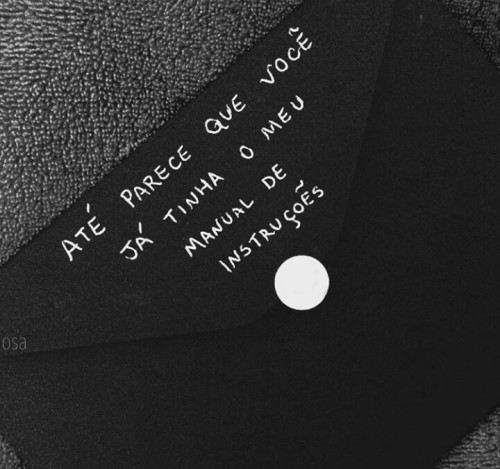 ATÉ PARECE QUE VOCÊ
JÁ TINHA O MEU
MANUAL DE
INSTRUÇÕES
osa